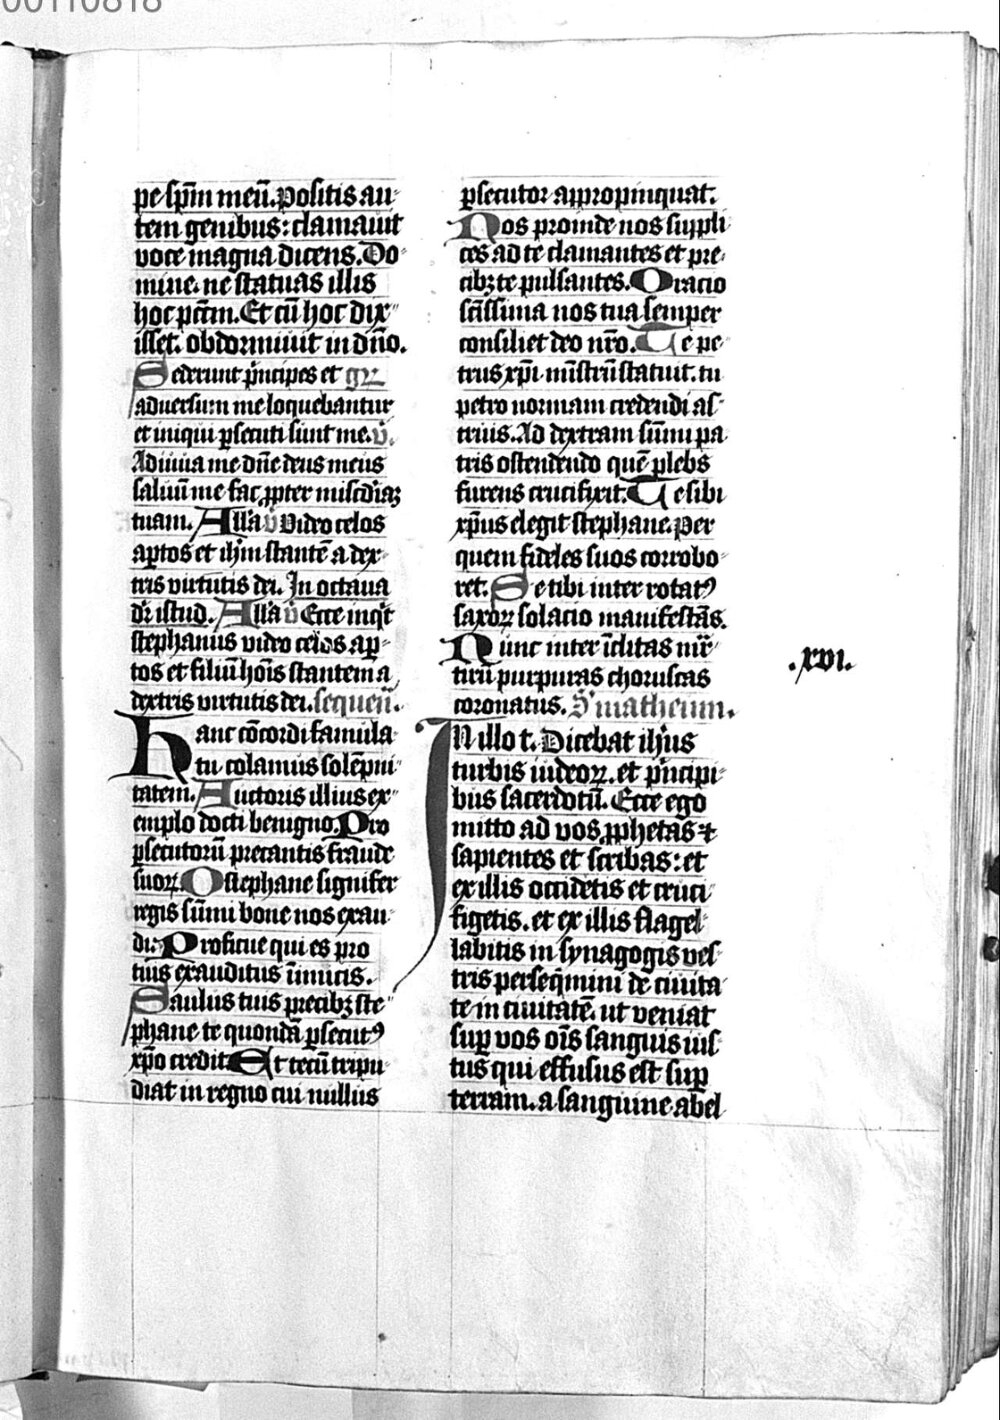 00110818
pe sp̄m meū. Positis au-
tem genibus: clamauit
voce magna dicens. Do-
mine. ne statuas illis
hoc pctm̄. Et cū hoc dix-
isset. obdormiuit in dn̄o.
Sederunt p̄ncipes et gꝛ̄
aduersum me loquebantur
et iniqui ꝑsecuti sunt me. v̄.
Adiuua me dn̄e deus meus
saluū me fac ꝓpter mīscdiaꝫ
tuam. Allā v̄ Video celos
aꝑtos et ih̄m stantē a dex-
tris virtutis dei. In octaua
dr̄ istud. Allā v̄ Ecce inqͥt
stephanus video celos aꝑ-
tos et filiū hoīs stantem a
dextris virtutis dei. sequen̄.
Hanc cōcordi famula-
tu colamus solēpni-
tatem. Auctoris illius ex-
emplo docti benigno. Pro
ꝑsecutorū precantis fraude
suoꝝ. O stephane signifer
regis sūmi bone nos exau-
di. Proficue qui es pro
tuis exauditus īimicis.
Saulus tuis precibꝫ ste-
phane te quondā ꝑsecutꝰ
xp̄o credit. Et tecū tripu-
diat in regno cui nullus
ꝑsecutor appropinquat.
Nos proinde nos suppli-
ces ad te clamantes et pre-
cibꝫ te pulsantes. Oracio
sc̄issima nos tua semper
consiliet deo nr̄o. Te pe-
trus xp̄i mīstrū statuit. tu
petro normam credendi as-
truis. Ad dextram sūmi pa-
tris ostendendo quē plebs
furens crucifixit. Te sibi
xp̄us elegit stephane. Per
quem fideles suos corrobo-
ret. Se tibi inter rotatꝰ
saxoꝝ solacio manifestās.
Nunc inter īclitas mr̄-
tirū purpuras choruscas
coronatus. S. matheum.
.xvi.
In illo t. Dicebat ih̄us
turbis iudeoꝝ. et p̄ncipi-
bus sacerdotū. Ecce ego
mitto ad vos ꝓphetas ⁊
sapientes et scribas: et
ex illis occidetis et cruci-
figetis. et ex illis flagel-
labitis in synagogis ves-
tris persequimini de ciuita-
te in ciuitatē. ut veniat
suꝑ vos oīs sanguis ius-
tus qui effusus est suꝑ
terram. a sanguine abel